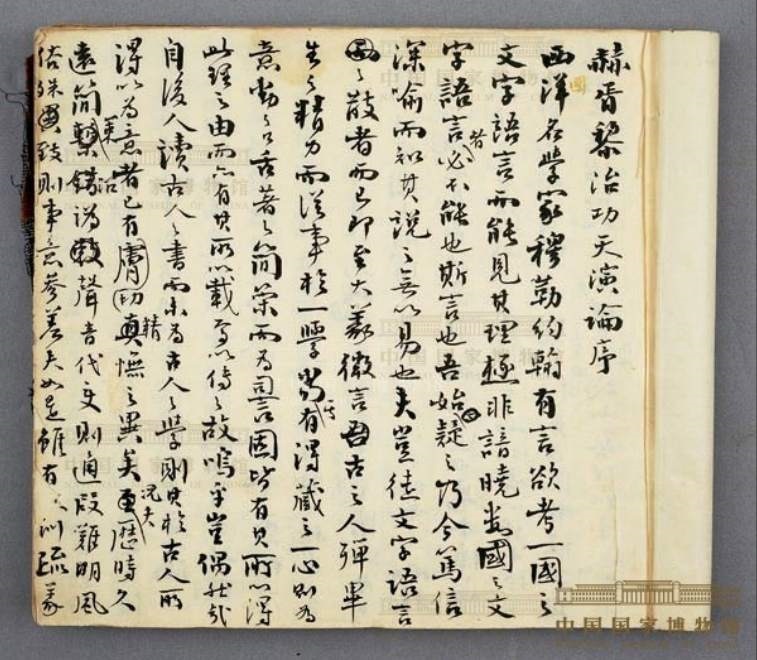 赫胥黎治功天演論序
西洋名學家穆勒約翰有言欲考一國之
國
文字語言而能見其理極非諳曉數國之文
字語言者必不能也斯言也吾始疑之乃今篤信
深喻而知其說之無以易也夫豈徒文字語言
之散者而已即至大義微言古之人殫畢
生之精力而從事於一學當其有得藏之一心則為
意動之口舌著之簡策而為詞固皆有其所以得
此理之由而亦有其所以載焉以傳之故嗚乎豈偶然哉
自後人讀古人之書而未為古人之學則其於古人所
得以為意者已有膚切精憮之異矣况夫歷時久
遠簡聲音代变則通叚難明風
俗殊則事意參差夫如是雖有訓疏義
中国国家博物馆